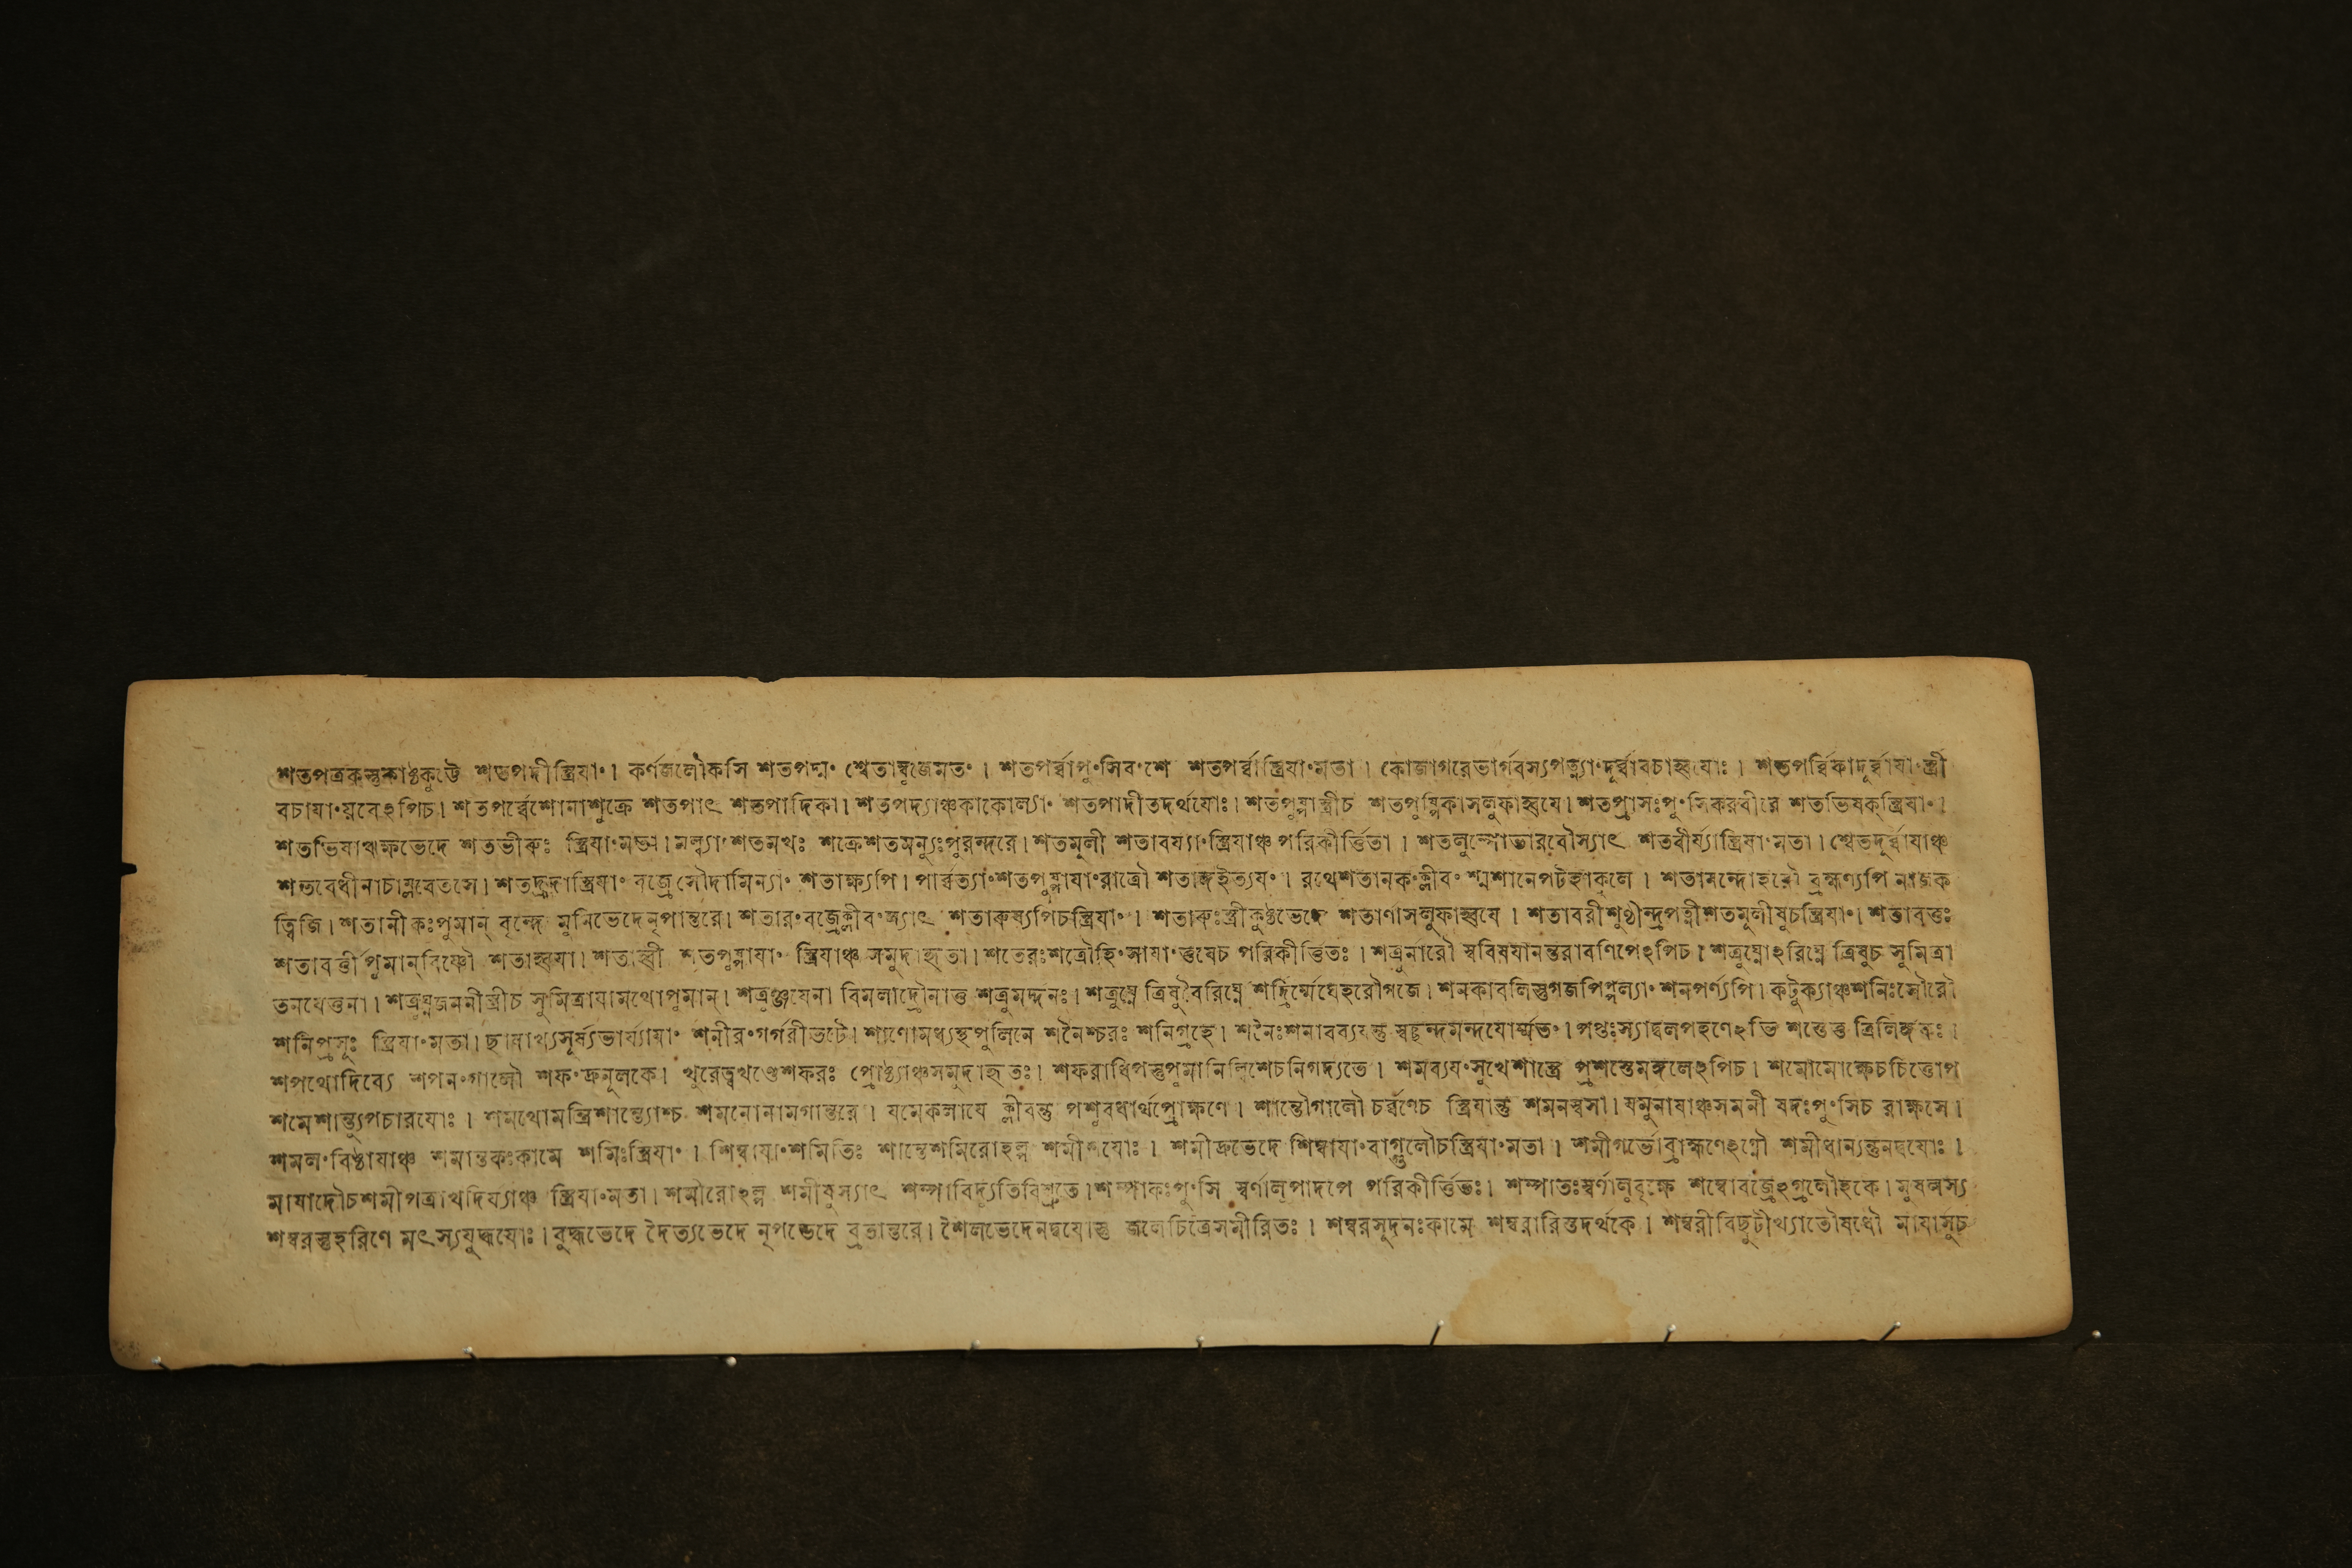 শতপত্রকস্তুকাষ্ঠকুট্টে শতপদীস্ত্রিযা°। কর্ণজলৌকসি শতপদ্ম° শ্বেতাম্বুজেমত°। শতপর্ব্বাপু°সিব°শে শতপর্ব্বাস্ত্রিযা°মতা। কোজাগরেভার্গবস্যপত্ন্যা°দূর্ব্বাবচাহ্বযোঃ। শতপর্ব্বিকাদূর্ব্বাযা°স্ত্রী
বচাযা°যবেঽপিচ। শতপর্ব্বেশোনাশুক্রে শতপাৎ শতপাদিকা। শতপদ্যাঞ্চকাকোল্যা° শতপাদীতদর্থযোঃ। শতপুষ্পাস্ত্রীচ শতপুষ্পিকাসলুফাহ্বযে। শতপ্রাসঃপু°সিকরবীরে শতভিষক্স্ত্রিযা°।
শতভিষাঋক্ষভেদে শতভীরুঃ স্ত্রিযা°মতা। মল্ল্যা°শতমখঃ শক্রেশতমন্যুঃপুরন্দরে। শতমূলী শতাবর্য্যা°স্ত্রিযাঞ্চ পরিকীর্ত্তিতা। শতলুম্পোভারবৌস্যাৎ শতবীর্য্যাস্ত্রিযা°মতা। শ্বেতদূর্ব্বাযাঞ্চ
শতবেধীনাচাম্লবেতসে। শতহ্রদাস্ত্রিযা° বজ্রেসৌদামিন্যা° শতাক্ষ্যপি। পার্ব্বত্যা°শতপুষ্পাযা°রাত্রৌ শতাঙ্গইত্যয°। রথেশতানক°ক্লীব° শ্মশানেপটহাকুলে। শতানন্দোহরৌ ব্রহ্মণ্যপি নাজক
ত্বিজি। শতানীকঃপুমান্ বৃদ্ধে মুনিভেদেনৃপান্তরে। শতার°বজ্রেক্লীব°স্যাৎ শতারুষ্যপিচস্ত্রিযা°। শতারুঃস্ত্রীকুষ্ঠভেদে শতাণাসলুফাহ্বযে। শতাবরীশুণ্ঠীন্দ্রপত্নীশতমূলীষুচস্ত্রিযা°। শতাবর্ত্তঃ
শতাবর্ত্তী পুমান্‌বিষ্ণৌ শতাহ্বযা। শতাহ্বী শতপুষ্পাযা° স্ত্রিযাঞ্চ সমুদাহৃতা। শতেরঃশত্রৌহি°সাযা°তুষেচ পরিকীর্ত্তিতঃ। শত্রুনারৌ স্ববিষযানন্তরাবণিপেঽপিচ। শত্রুঘ্নোঽরিঘ্নে ত্রিষুচ সুমিত্রা
তনযেত্তুনা। শত্রুঘ্নজননীস্ত্রীচ সুমিত্রাযামথোপুমান্। শত্রুঞ্জযেনা বিমলাদ্রৌনাত্ত শত্রুমর্দ্দনঃ। শত্রুঘ্নে ত্রিষুবৈরিঘ্নে শদ্রির্ম্মেঘেহরৌগজে। শনকাবলিস্তুগজপিপ্পল্যা° শনপর্ণ্যপি। কটুক্যাঞ্চশনিঃসৌরৌ
শনিপ্রসূঃ স্ত্রিযা°মতা। ছাযাখ্যসূর্য্যভার্য্যাযা° শনীর°গর্গরীতটে। শাণোমধ্যস্থপুলিনে শনৈশ্চরঃ শনিগ্রহে। শনৈঃশনাবব্যযন্তু স্বচ্ছন্দমন্দযোর্ম্মত°। শপ্তঃস্যাদ্বলপহণেঽভি শপ্তেত্ত ত্রিলিঙ্গকঃ।
শপথোদিব্যে শপন°গালৌ শফ°দ্রুমূলকে। খুরেত্বখণ্ডেশফরঃ প্রোষ্ঠ্যাঞ্চসমুদাহৃতঃ। শফরাধিপস্তুপুমানিলিশেচনিগদ্যতে। শমব্যয°সুখেশাস্ত্রে প্রশস্তেমঙ্গলেঽপিচ। শমোমোক্ষেচচিত্তোপ
শমেশান্ত্যুপচারযোঃ। শমথোমন্ত্রিশান্ত্যোশ্চ শমনোনামগান্তরে। যমেকলাযে ক্লীবন্তু পশুবধার্থপ্রোক্ষণে। শান্তৌগালৌ চর্ব্বণেচ স্ত্রিযান্তু শমনস্বসা। যমুনাযাঞ্চসমনী ষদঃপু°সিচ রাক্ষসে।
শমল°বিষ্ঠাযাঞ্চ শমান্তকঃকামে শমিঃস্ত্রিযা°। শিম্বাযা°শমিতিঃ শান্তেশমিরোহল্প শমীদ্বযোঃ। শমীদ্রুভেদে শিম্বাযা°বাগ্গুলৌচস্ত্রিযা°মতা। শমীগর্ভোব্রাহ্মণেঽগ্নৌ শমীধান্যন্তুনদ্বযোঃ।
মাষাদৌচশমীপত্রাখদির্য্যাঞ্চ স্ত্রিযা°মতা। শমীরোঽল্প শমীবুস্যাৎ শম্পাবিদ্যুতিবিশ্রুতে। শম্পাকঃপু°সি স্বর্ণালুপাদপে পরিকীর্ত্তিতঃ। শম্পাতঃস্বর্ণালুবৃক্ষে শম্বোবজ্রেঽগ্রলৌহকে। মুষলস্য
শম্বরস্তুহরিণে মৎস্যযুদ্ধযোঃ। বুদ্ধভেদে দৈত্যভেদে নৃপভেদে ব্রতান্তরে। শৈলভেদেনদ্বযোস্তু জলেচিত্রেসমীরিতঃ। শম্বরসূদনঃকামে শম্বরারিস্তদর্থকে। শম্বরীবিছুটীখ্যাতৌষধৌ মাযাসুচ